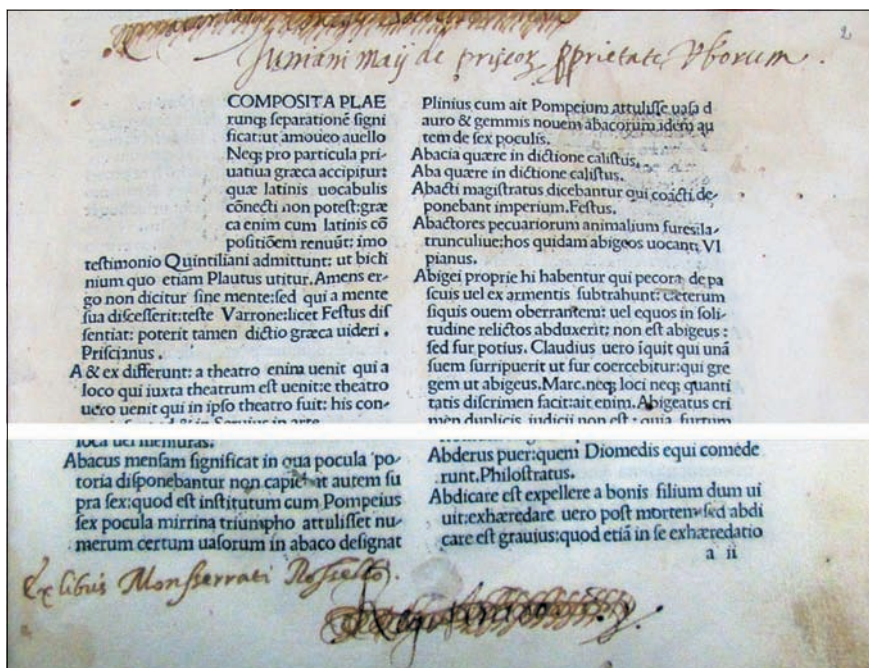 2
Iuniani Maij de priscoꝝ ꝓprietate Vborum.
COMPOSITA PLAE
runq; separationē signi
ficat:ut amoueo auello
Neq; pro particula pri-
uatiua græca accipitur:
quæ latinis uocabulis
cōnecti non potest:græ
ca enim cum latinis cō
positiōem renuūt: imo
testimonio Quintiliani admittunt: ut bicli
nium quo etiam Plautus utitur. Amens er-
go non dicitur sine mente:sed qui a mente
sua discesserit:teste Varrone:licet Festus dis
sentiat: poterit tamen dictio græca uideri.
Priscianus.
A & ex differunt: a theatro enim uenit qui a
loco qui iuxta theatrum est uenit:e theatro
uero uenit qui in ipso theatro fuit: his con-
in arte
loca uel mensuras.
Abacus mensam significat in qua pocula po-
toria disponebantur non capiebat autem su
pra sex:quod est institutum cum Pompeius
sex pocula mirrina triumpho attulisset nu-
merum certum uasorum in abaco designat
Plinius cum ait Pompeium attulisse uasa d
auro & gemmis nouem abacorum idem au
tem de sex poculis.
Abacia quære in dictione calistus.
Aba quære in dictione calistus.
Abacti magistratus dicebantur qui coacti de-
ponebant imperium. Festus.
Abactores pecuariorum animalium fures:la-
trunculiue:hos quidam abigeos uocant: Vl
pianus.
Abigei proprie hi habentur qui pecora de pa
scuis uel ex armentis subtrahunt: cæterum
siquis ouem oberrantem: uel equos in soli-
tudine relictos abduxerit: non est abigeus:
sed fur potius. Claudius uero īquit qui unā
suem surripuerit ut fur coercebitur:qui gre
gem ut abigeus. Marc. neq; loci neq; quanti
tatis discrimen facit:ait enim. Abigeatus cri
men duplicis iudicii non est: quia furtum
Abderus puer:quem Diomedis equi comede
runt. Philostratus.
Abdicare est expellere a bonis filium dum ui
uit:exhæredare uero post mortem:sed abdi
care est grauius:quod etiā in se exhæredatio
a ii
Ex libris Monserrati Rosselló.